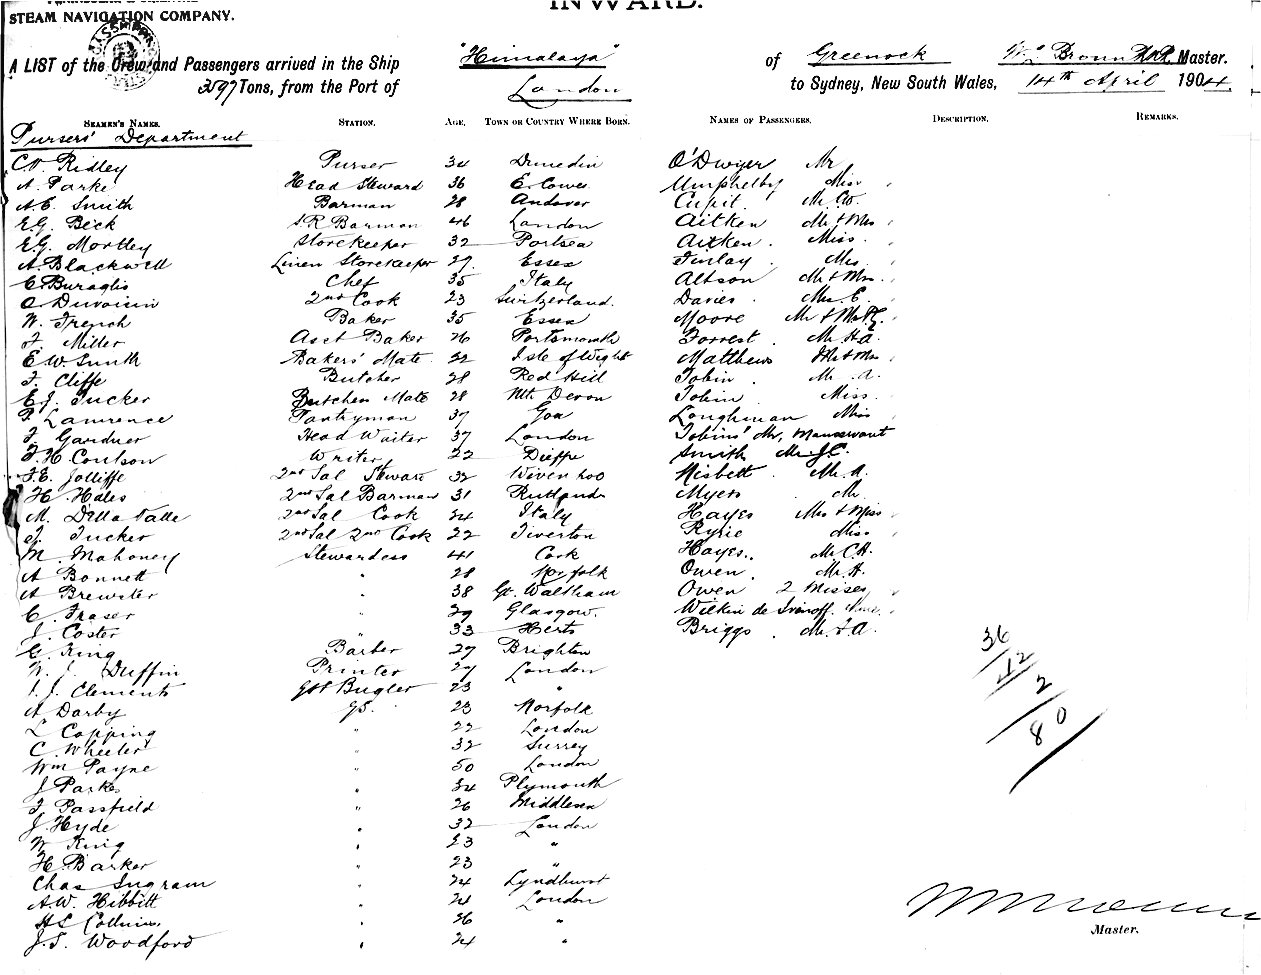 INWARD.
STEAM NAVIGATION COMPANY.
A LIST of the Crew and Passengers arrived in the Ship "Himalaya" of Greenock Master.
3597 Tons, from the Port of London to Sydney, New South Wales, 14th April 1904.
SEAMEN'S NAMES. STATION. AGE. TOWN OR COUNTRY WHERE BORN. NAMES OF PASSENGERS. DESCRIPTION. REMARKS.
Pursers' Department
Ridley Purser 34 Dunedin O'Dwyer Mr
A. Parke Head Steward 36 E. Cowes Umphelby Miss
A.E. Smith Barman 28 Andover Cupit Mr
E.G. Beck S.R Barman 46 London Aitken Mr & Mrs
E.G. Mortley Storekeeper 32 Portsea Aitken. Miss.
A. Blackwell Linen Storekeeper 29 Essex Finlay.
E. Buraglis Chef 35 Italy Altson Mr & Mrs.
Duvoisin 2nd Cook 23 Switzerland. Davies. E.
W. French Baker 35 Essex Moore Mr &
J. Miller Asst Baker 26 Portsmouth Forrest. Mr
E.W. Smith Bakers' Mate 22 Isle of Wight Matthews Mr & Mrs
F. Cliffe Butcher 28 Red Hill Tobin. Mr A.
E.J. Tucker Butchers Mate 28 Nth Devon Tobin. Miss.
Lawrence Pantryman 37 Goa Loughman Miss
F. Gardner Head Waiter 37 London Tobins' Mr, Manservant
F.H. Coulson Writer 22 Dieppe Smith Mr J.C.
F.E. Jolliffe 2nd Sal Steward 32 Wivenhoo Nisbett. Mr A.
H. Hales 2nd Sal Barman 31 Rutland Myers Mr
M. Della Valle 2nd Sal Cook 24 Italy Hayes Mrs & Miss
J. Tucker 2nd Sal 2nd Cook 22 Tiverton Ryrie Miss
M. Mahoney Stewardess 41 Cork Hayes. Mr C.H.
A Bonnett " 28 Norfolk Owen. Mr H.
A Brewster " 38 Gt. Waltham Owen 2 Misses
C. Fraser " 29 Glasgow. Wilkin de
J. Coster " 33 Herts Briggs. Mr J.A.
G. King Barber 29 Brighton
W. J. Duffin Printer 27 London
J. Clements G.S. Bugler 23 "
A Darby G.S. 23 Norfolk
L Copping " 22 London
C. Wheeler " 32 Surrey
Wm Payne " 50 London
J Parkes " 34 Plymouth
F. Passfield " 26 Middlesex
J. Hyde " 32 London
W King " 23 "
H. Barker " 23 "
Chas Ingram " 24 Lyndhurst
A.W. Hibbitt " 24 London
HS Collins " 26 "
J.S. Woodford " 24 "
36
42
2
80
Master.